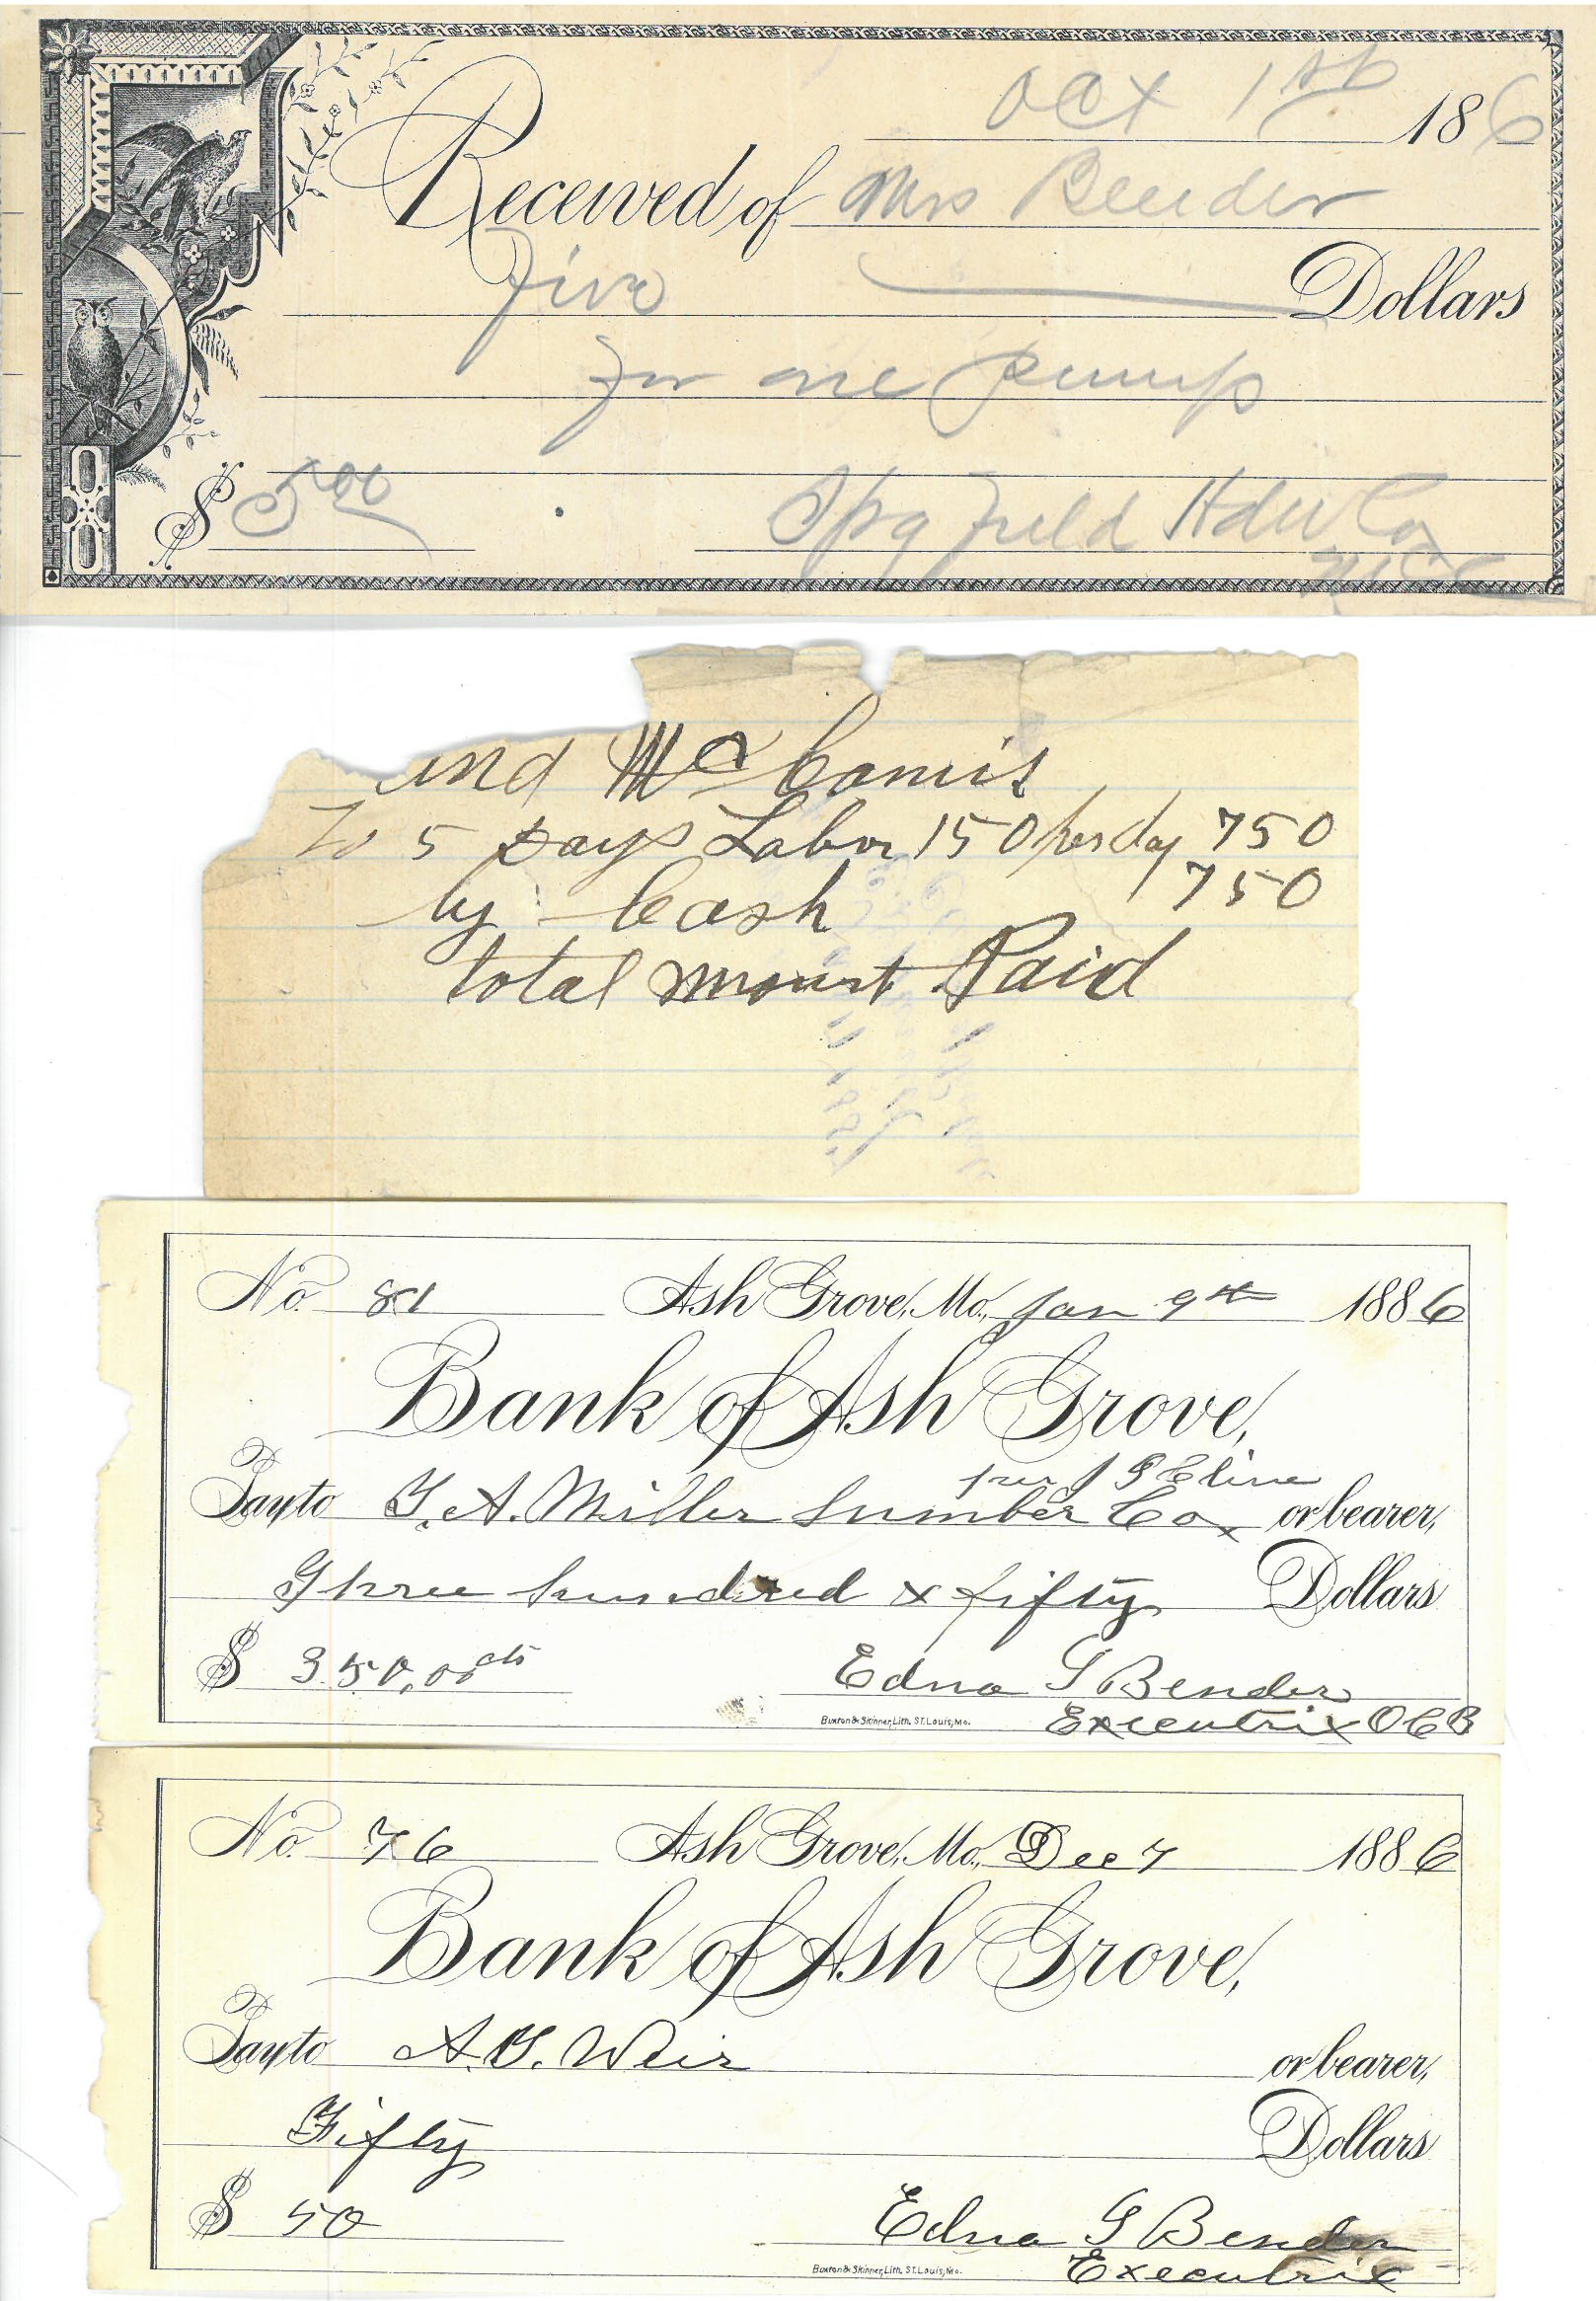 Oct 1st 186
Received of Mrs Bender
Five Dollars
for one pump
$ 5.00 Spgfield Hdw Co
and Mc Camis
To 5 Days Labor 150 per day 750
by Cash 750
total mount Paid
No. 81 Ash Grove, Mo., Jan 9th 1886
Bank of Ash Grove,
per J G Cline
Pay to T. A. Miller Lumber Co. or bearer,
Three hundred & fifty Dollars
$ 350.00 cts Edna G Bender
Buxton & Skinner, Lith. St. Louis, Mo. Executrix O C B
No. 76 Ash Grove, Mo., Dec 7 1886
Bank of Ash Grove,
Pay to A. G. Weir or bearer,
Fifty Dollars
$ 50 Edna G Bender
Buxton & Skinner, Lith. St. Louis, Mo. Executrix